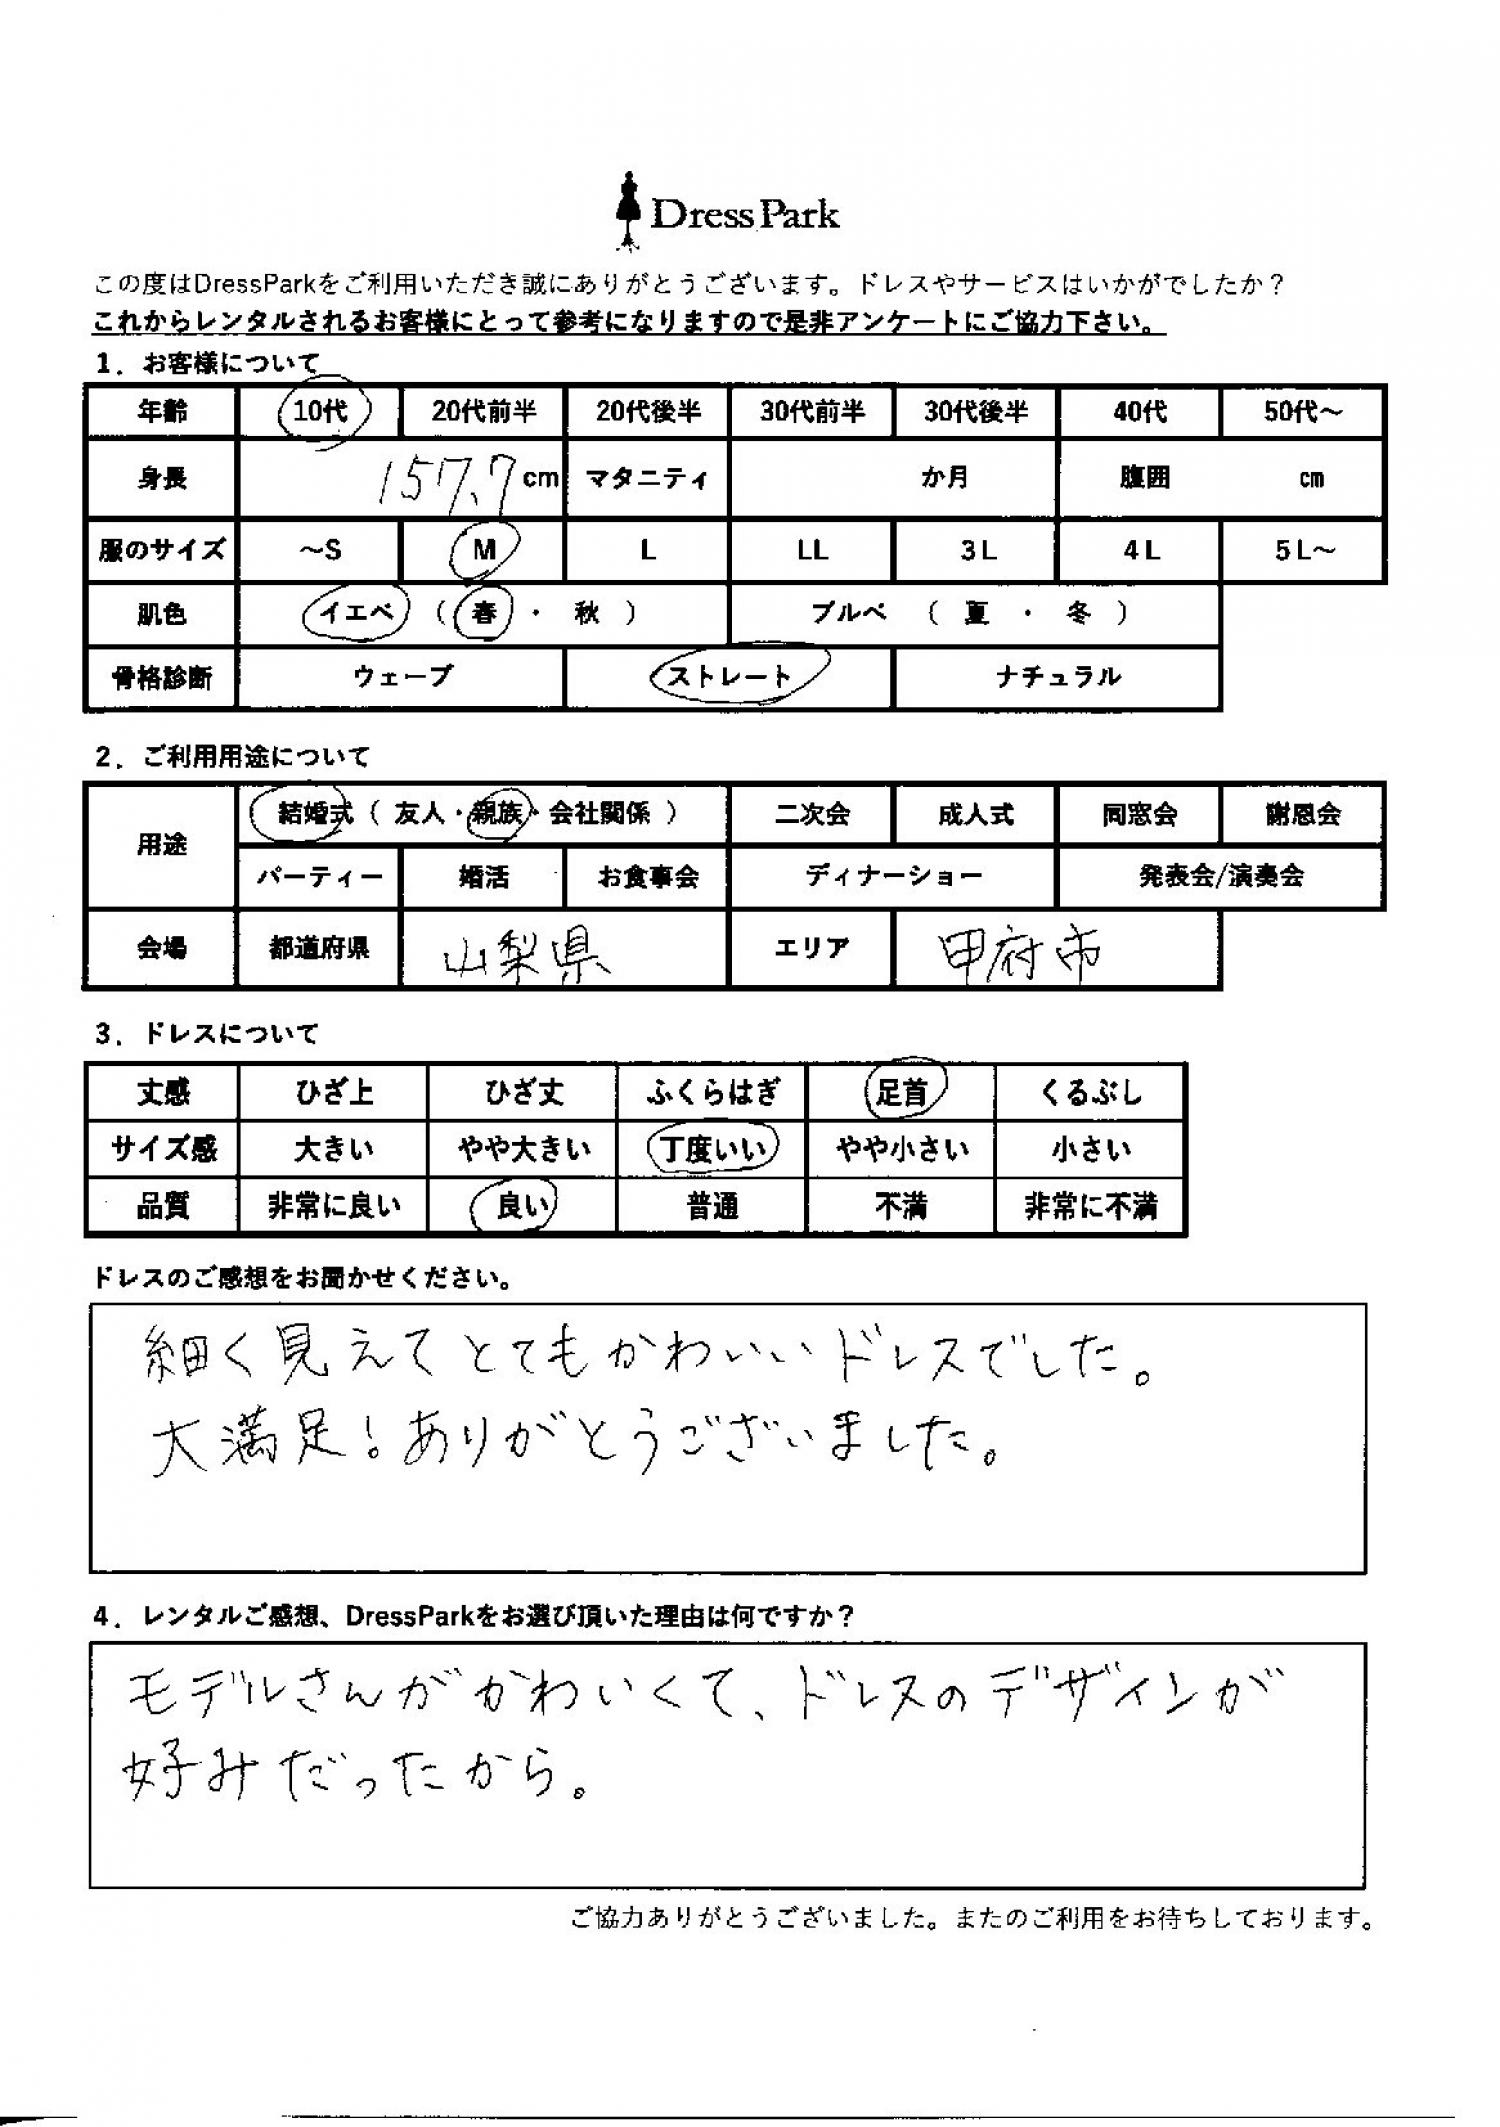 DressPark
この度はDressParkをご利用いただき誠にありがとうございます。ドレスやサービスはいかがでしたか？
これからレンタルされるお客様にとって参考になりますので是非アンケートにご協力下さい。
1．お客様について
年齢 10代 20代前半 20代後半 30代前半 30代後半 40代 50代～
身長 157.7 cm マタニティ か月 腹囲 cm
服のサイズ ～S M L LL 3L 4L 5L～
肌色 イエベ （ 春 ・ 秋 ） ブルベ （ 夏 ・ 冬 ）
骨格診断 ウェーブ ストレート ナチュラル
2．ご利用用途について
用途 結婚式（ 友人・親族・会社関係 ） 二次会 成人式 同窓会 謝恩会
パーティー 婚活 お食事会 ディナーショー 発表会/演奏会
会場 都道府県 山梨県 エリア 甲府市
3．ドレスについて
丈感 ひざ上 ひざ丈 ふくらはぎ 足首 くるぶし
サイズ感 大きい やや大きい 丁度いい やや小さい 小さい
品質 非常に良い 良い 普通 不満 非常に不満
ドレスのご感想をお聞かせください。
細く見えてとてもかわいいドレスでした。
大満足！ありがとうございました。
4．レンタルご感想、DressParkをお選び頂いた理由は何ですか？
モデルさんがかわいくて、ドレスのデザインが
好みだったから。
ご協力ありがとうございました。またのご利用をお待ちしております。